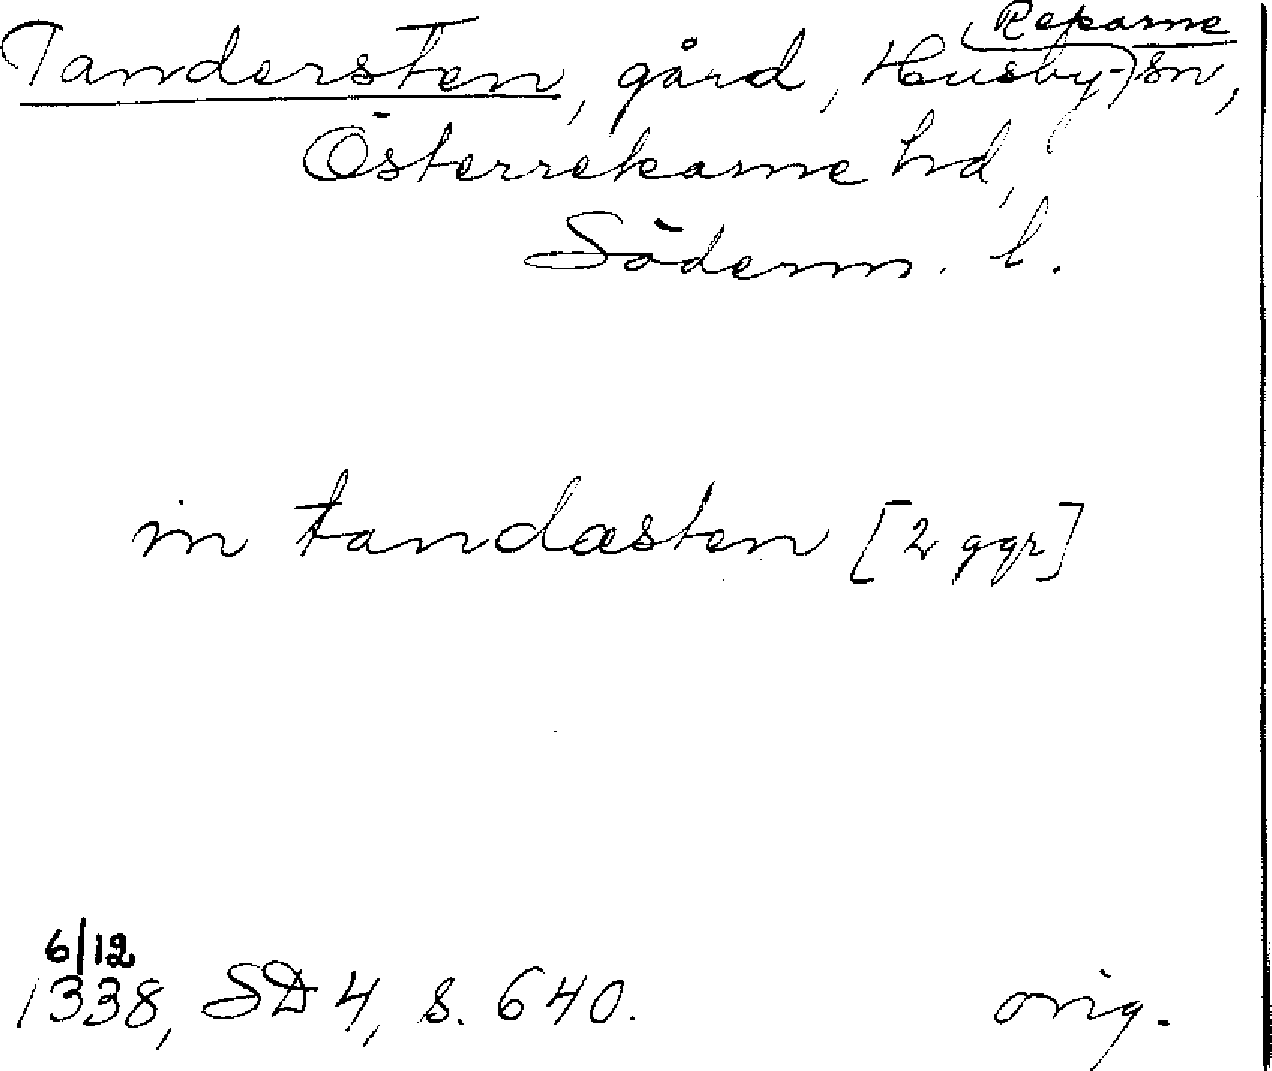 Tandersten, gård, Husby-Rekarne sn,
Österrekarne hd,
Söderm. l.
in tandæsten [2 ggr]
6/12
1338, SD 4, s. 640. orig.